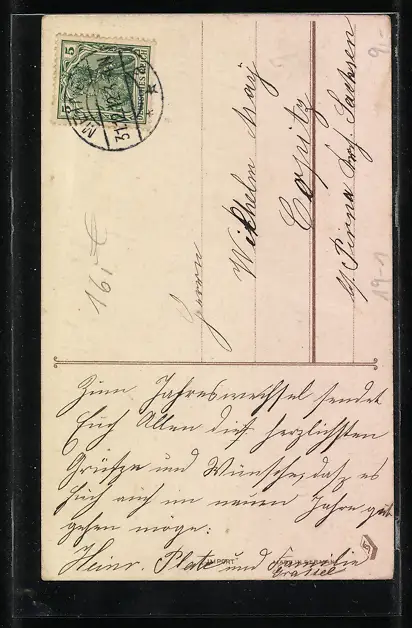 5
31.12.12.
Herrn
Wilhelm May
Copitz
b/ Pirna Kgr. Sachsen
Zum Jahreswechsel sendet
Euch Allen die herzlichsten
Grüsse und Wünsche, das es
Euch auch im neuen Jahre gut
gehen möge:
Heinr. Plate und Familie
IMPORT